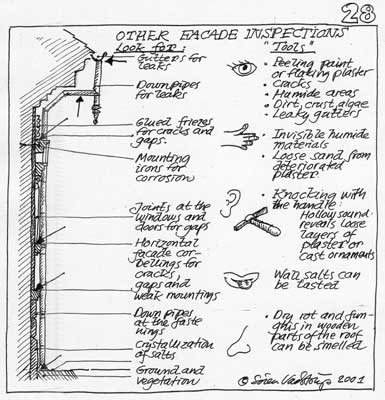 28
OTHER FACADE INSPECTIONS
Look for:
Gutters for
leaks
Downpipes
for leaks
Glued friezes
for cracks and
gaps.
Mounting
irons for
corrosion
Joints at the
windows and
doors for gaps
Horizontal
facade cor-
bellings for
cracks,
gaps and
weak mountings
Down pipes
at the faste
nings
Crystallization
of salts
Ground and
vegetation
"Tools"
• Peeling paint
or flaking plaster
• Cracks
• Humide areas
• Dirt, crust, algae
• Leaky gutters
• Invisible humide
materials
• Loose sand from
deteriorated
plaster
• Knocking with
the handle:
Hollow sound
reveals loose
layers of
plaster or
cast ornaments
Wall salts can
be tasted
• Dry rot and fun-
ghis in wooden
parts of the roof
can be smelled
© Søren Vadstrup 2001